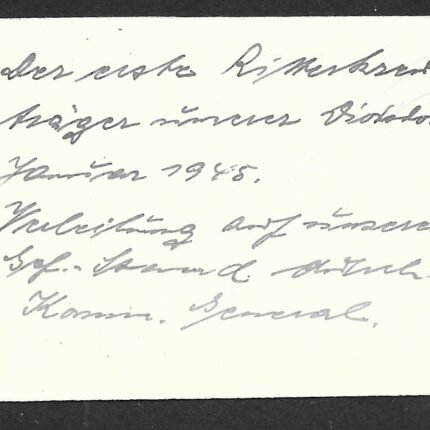 Der erste Ritterkreu
träger unserer Divisio
Januar 1945.
Verleihung auf unsere
Gef.-Stand durch
Komm. General.